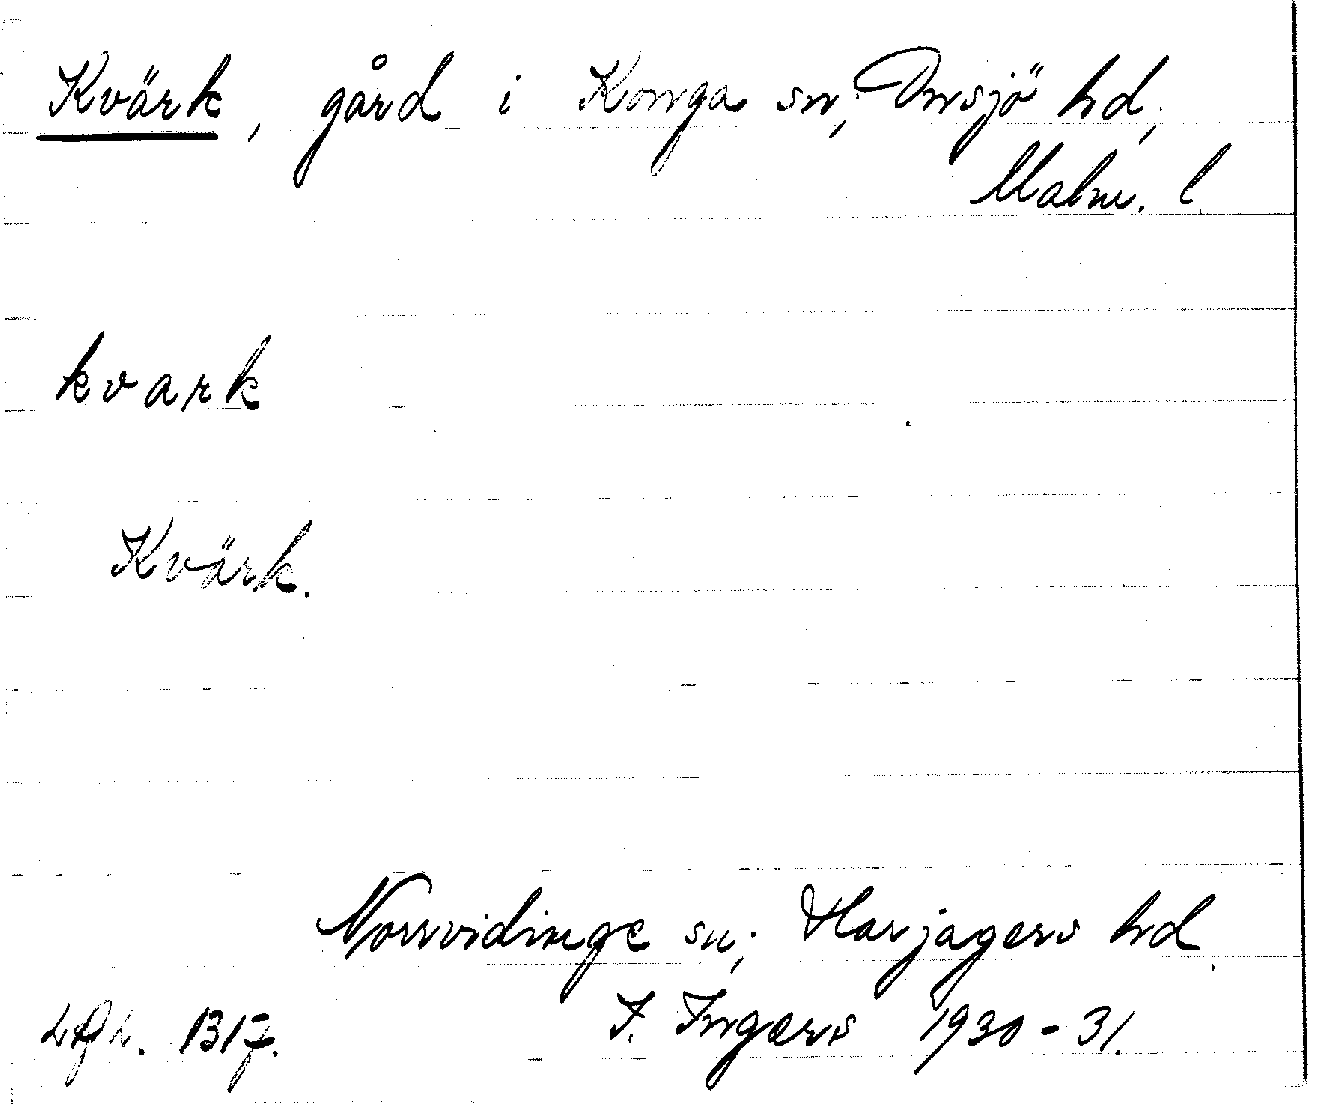 Kvärk, gård i Konga sn, Onsjö hd,
Malm. l.
kvark
Kvärk.
Norrvidinge sn, Harjagers hd.
I. Ingers 1930-31.
1317.